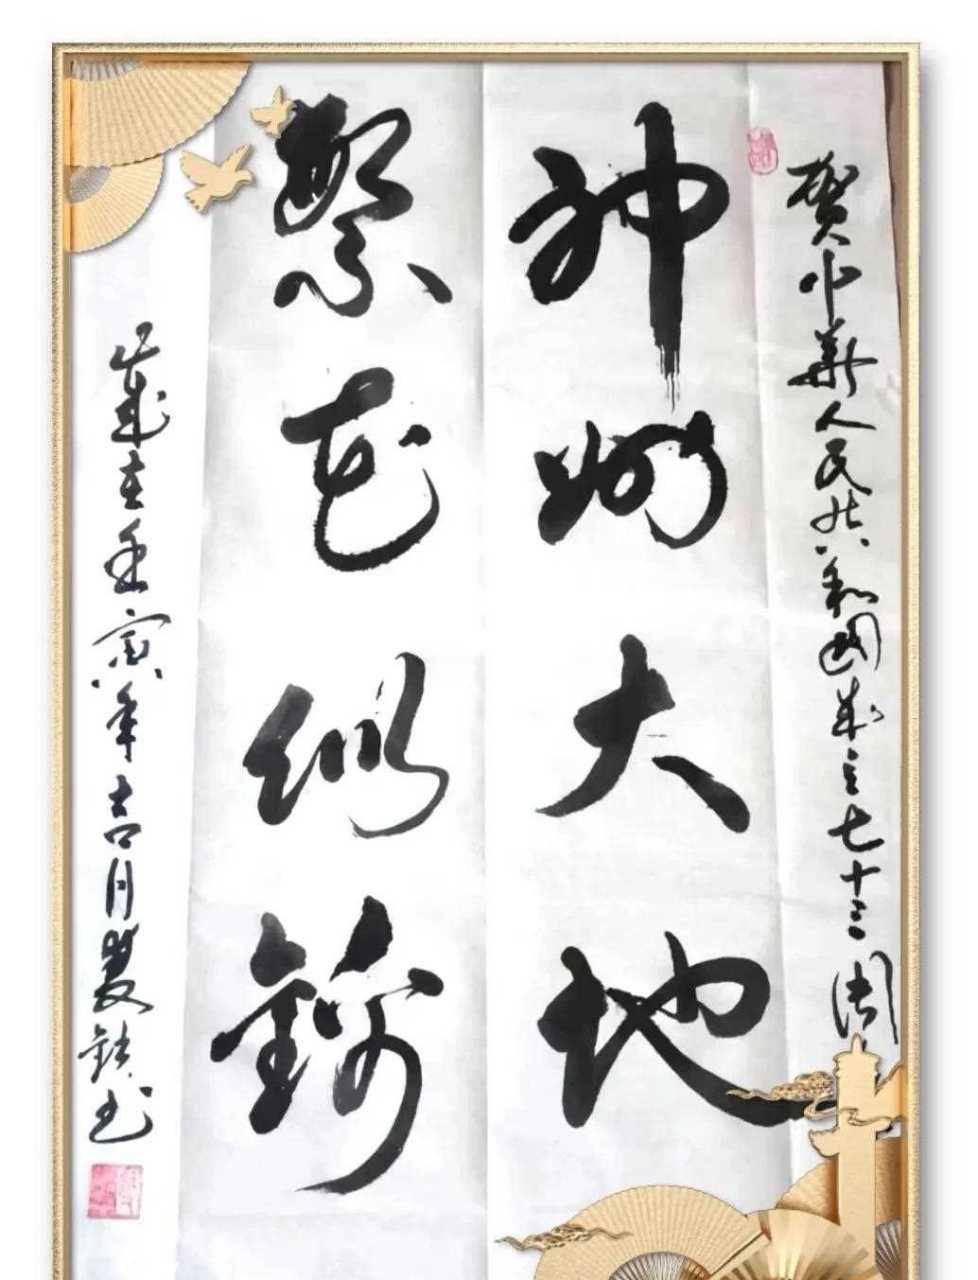 贺中华人民共和国成立七十三周
神州大地
繁花似锦
岁在壬寅年吉月铁书